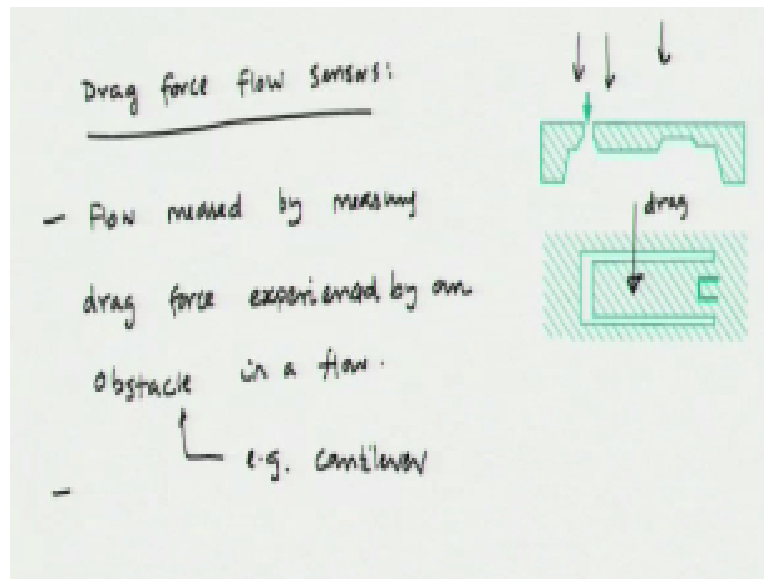 Drag force flow sensors:
- Flow measured by measuring
drag force experienced by an
obstacle in a flow.
e.g. cantilever
-
drag